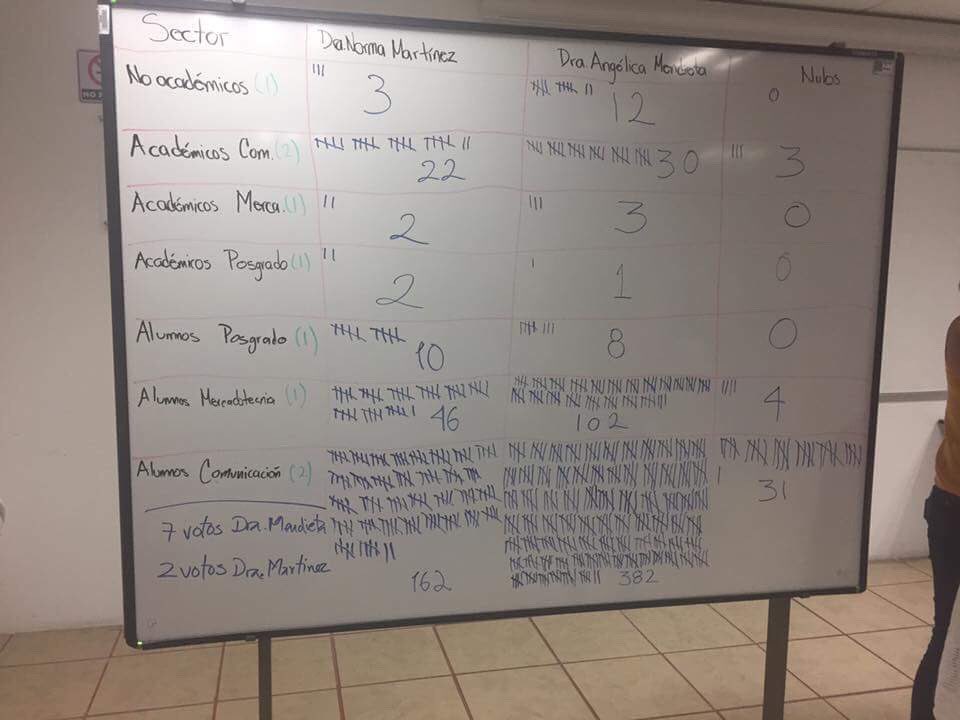 Sector Dra. Norma Martínez Dra Angélica Mendieta Nulos
No académicos (1) 3 12 0
Académicos Com. (2) 22 30 3
Académicos Merca. (1) 2 3 0
Académicos Posgrado (1) 2 1 0
Alumnos Posgrado (1) 10 8 0
Alumnos Mercadotecnia (1) 46 102 4
Alumnos Comunicación (2) 162 382 31
7 votos Dra. Mendieta
2 votos Dra. Martínez